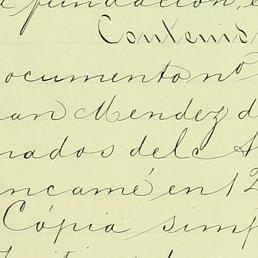 fundación, e
Contenid
ocumento nº
uan Mendez d
nados del A
ncamé en 12
Cópia simp